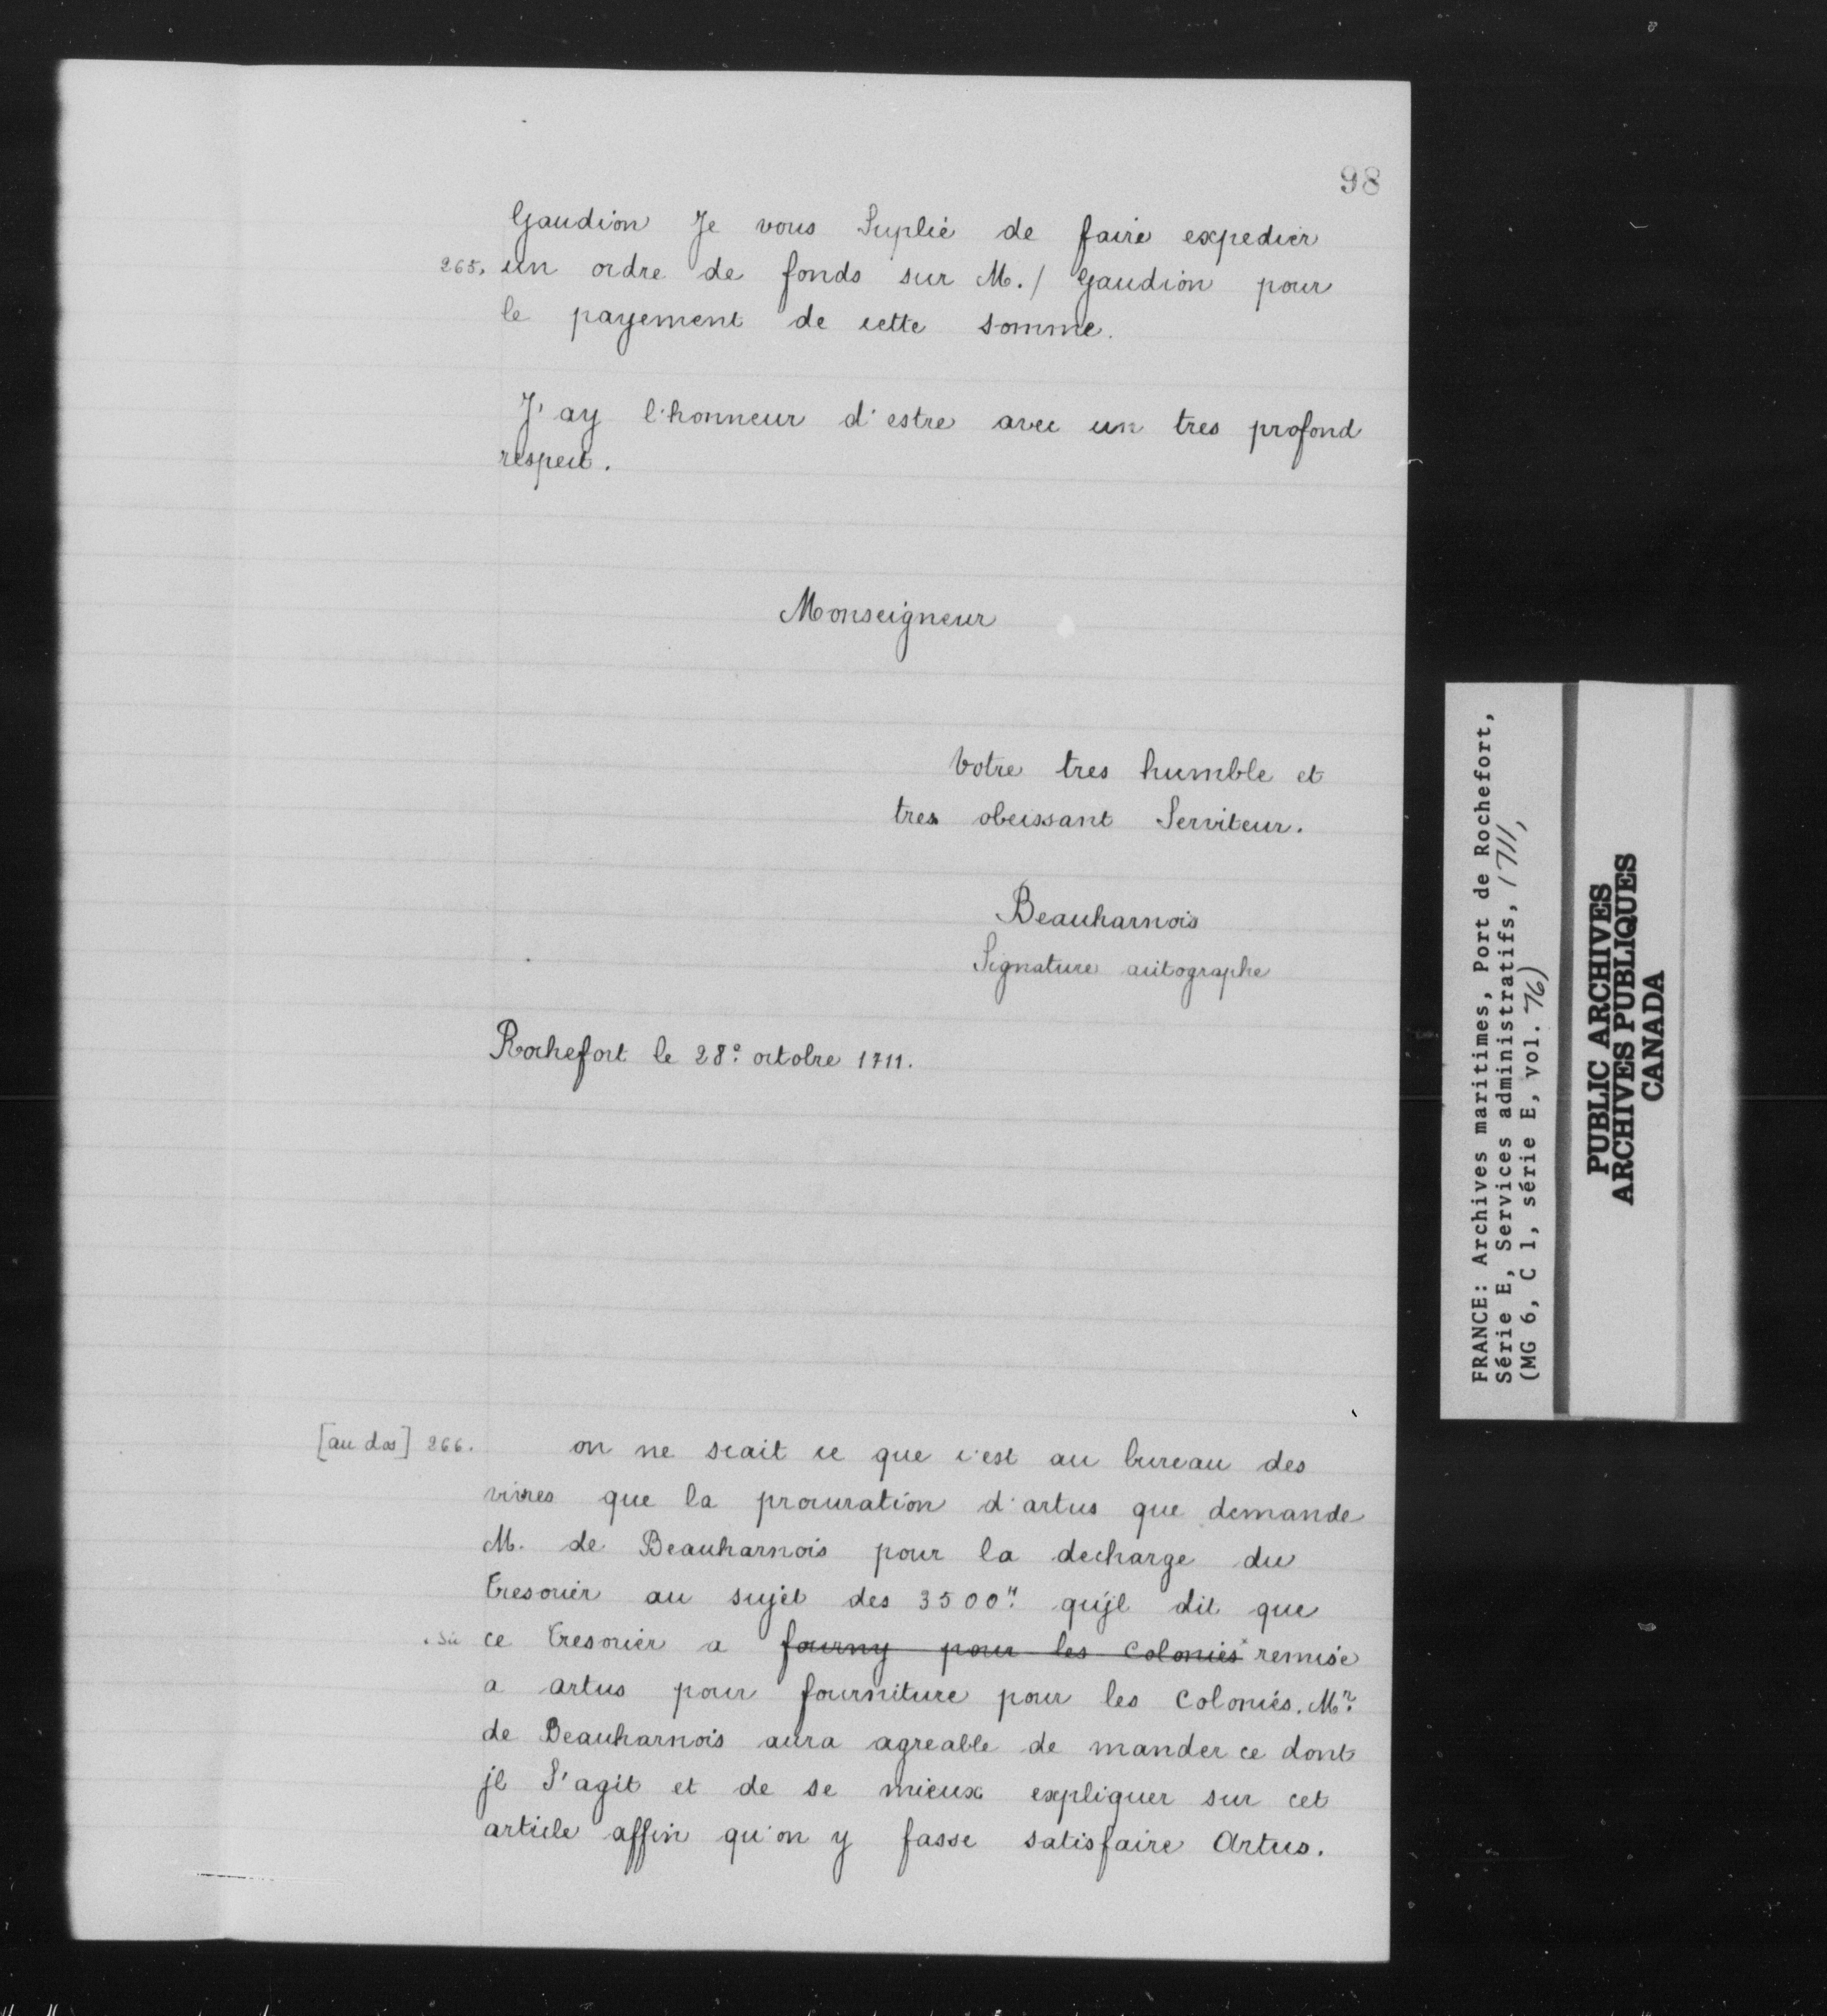 98
Gaudion Je vous Suplie de faire expedier
265. un ordre de fonds sur M. / Gaudion pour
le payement de cette somme.
J'ay l'honneur d'estre avec un tres profond
respect.
Monseigneur
Votre tres humble et
tres obeissant Serviteur.
Beauharnois
Signature autographe
Rochefort le 28e octobre 1711.
[au dos] 266. on ne scait ce que c'est au bureau des
vivres que la procuration d'artus que demande
M. de Beauharnois pour la decharge du
tresorier au sujet des 3500" qu'jl dit que
. Sic ce tresorier a fourny pour les colonies* remise
a artus pour fourniture pour les colonies. Mr.
de Beauharnois aura agreable de mander ce dont
jl S'agit et de se mieux expliquer sur cet
article affin qu'on y fasse satisfaire Artus.
FRANCE: Archives maritimes, Port de Rochefort,
Série E, Services administratifs, 1711,
(MG 6, C 1, série E, vol. 76)
PUBLIC ARCHIVES
ARCHIVES PUBLIQUES
CANADA